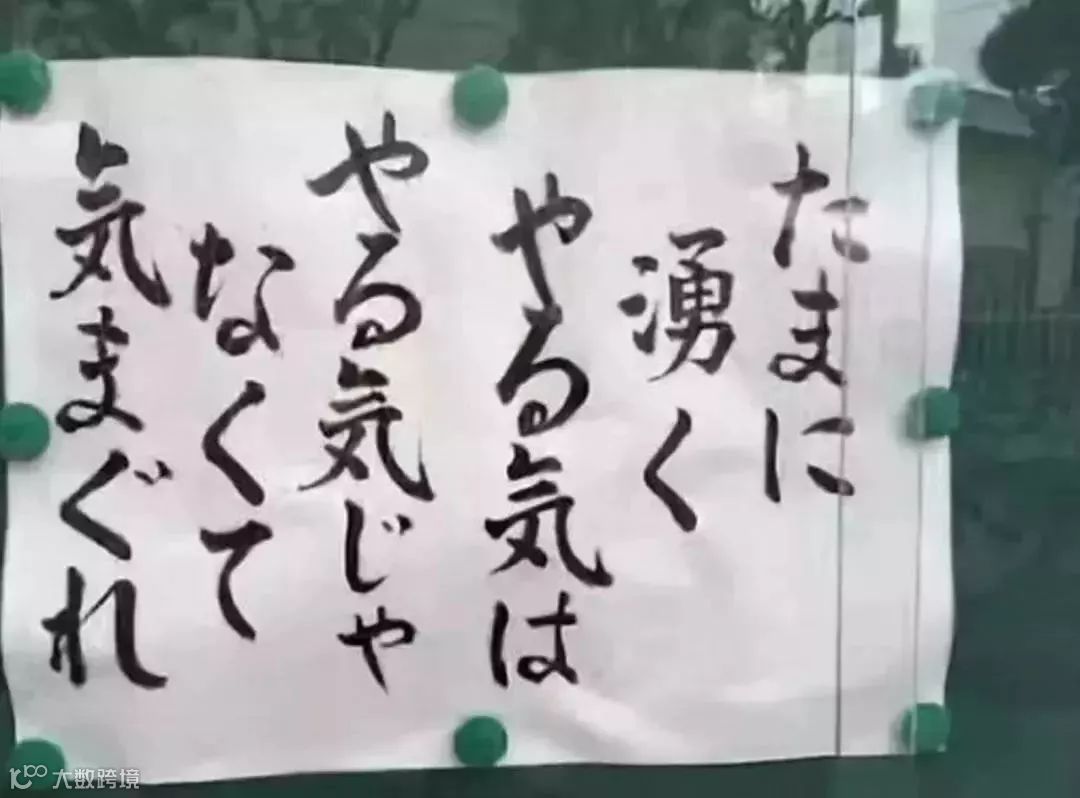 たまに
湧く
やる気は
やる気じゃ
なくて
気まぐれ
大数跨境